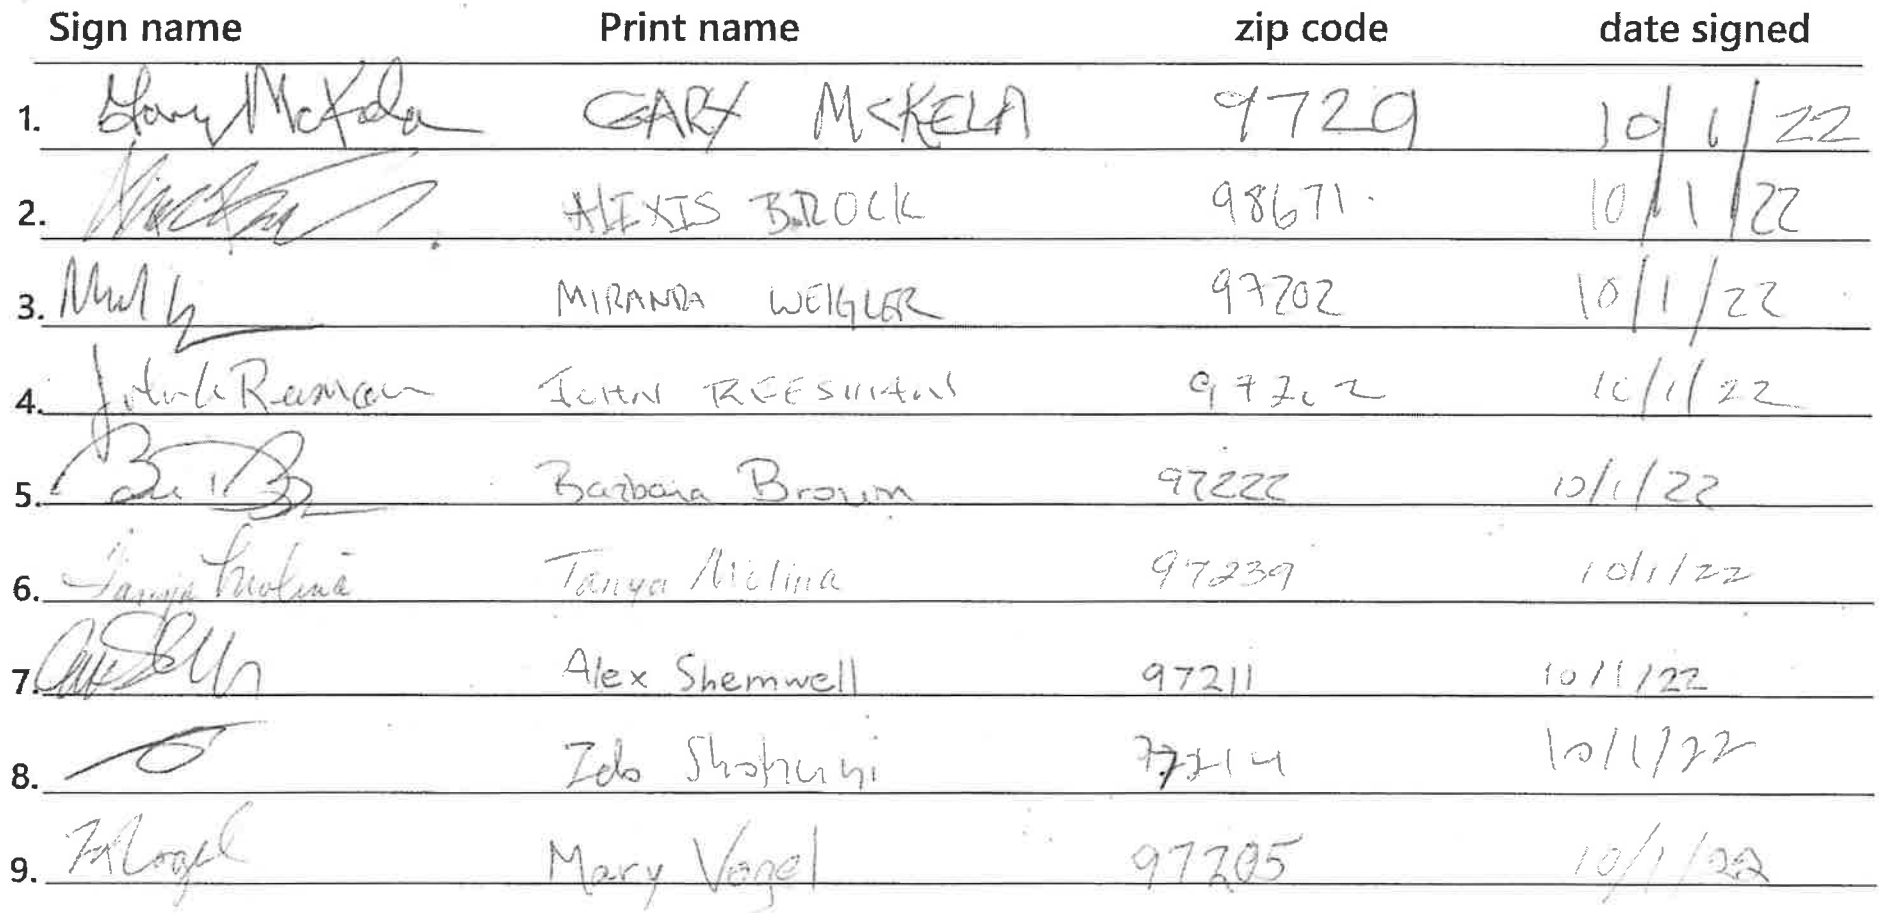 Sign name Print name zip code date signed
1. Gary McKela GARY MCKELA 9729 10/1/22
2. ALEXIS BROCK 98671 10/1/22
3. MIRANDA WEIGLER 97202 10/1/22
4. John REESMAN JOHN REESMAN 97202 10/1/22
5. Barbara Brown 97222 10/1/22
6. Tanya Molina Tanya Molina 97239 10/1/22
7. Alex Shemwell 97211 10/1/22
8. Ido 10/1/22
9. Mary Vogel 97205 10/1/22